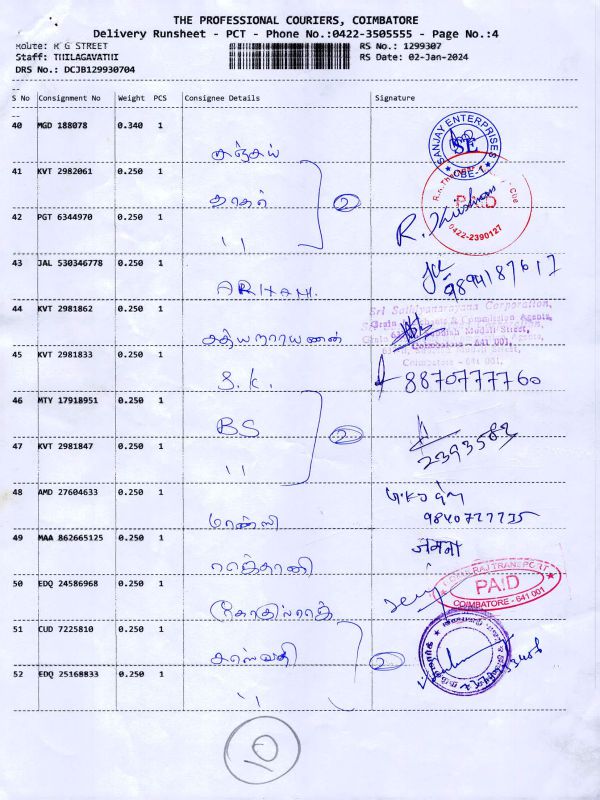 THE PROFESSIONAL COURIERS, COIMBATORE
Delivery Runsheet - PCT - Phone No.:0422-3505555 - Page No.:4
Route: R G STREET
RS No.: 1299307
Staff: THILAGAVATHI
RS Date: 02-Jan-2024
DRS No.: DCJB129930704
S No Consignment No Weight PCS Consignee Details Signature
40 MGD 188078 0.340 1
சஞ்சய்
SANJAY ENTERPRISES SE CBE-1
41 KVT 2982061 0.250 1
தாகர் 2
PAID
42 PGT 6344970 0.250 1
R. Krishnan
0422-2390127
11
43 JAL 530346778 0.250 1
ARIHANT.
9894187617
44 KVT 2981862 0.250 1
Sri Sathyanarayana Corporation,
சத்யநாராயணன்
Grain Merchants & Commission Agents,
Coimbatore - 641 001.
45 KVT 2981833 0.250 1
S.K.
8870777760
46 MTY 17918951 0.250 1
BS 2
2393582
47 KVT 2981847 0.250 1
11
48 AMD 27604633 0.250 1
மான்ஸி
9840727735
49 MAA 862665125 0.250 1
जमना
50 EDQ 24586968 0.250 1
RAJ TRANSPORT
PAID
COIMBATORE - 641 001
51 CUD 7225810 0.250 1
சரஸ்வதி 2
52 EDQ 25168833 0.250 1
11
10